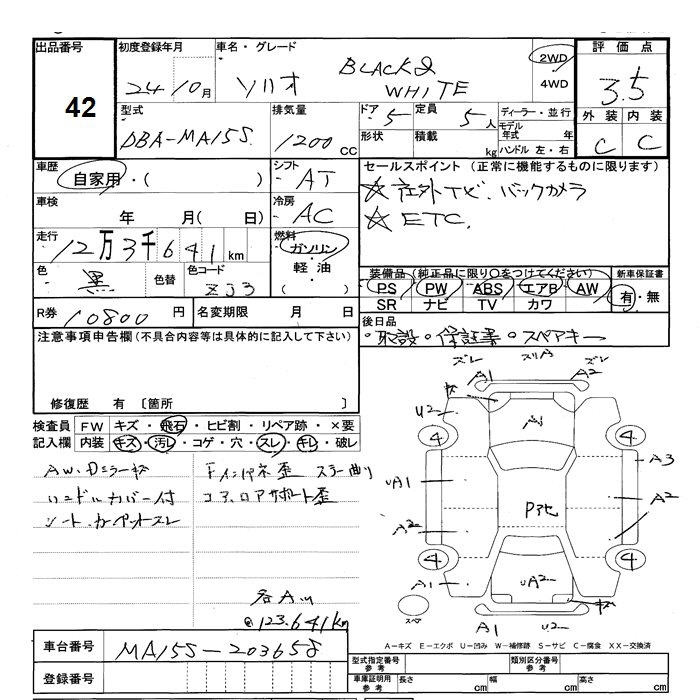 出品番号
42
初度登録年月
24年10月
車名・グレード
ソリオ
BLACK&
WHITE
2WD
4WD
評価点
3.5
外装 内装
C C
型式
DBA-MA15S
排気量
1200 CC
ドア 5
定員 5人
形状
積載 kg
ディーラー・並行
モデル年式 年
ハンドル 左・右
車歴
自家用・( )
シフト
AT
車検
年 月( 日)
冷房
AC
走行
12万3千641km
燃料
ガソリン
軽油
( )
色
黒
色替
色コード
ZJ3
R券 10800円
名変期限 月 日
セールスポイント(正常に機能するものに限ります)
☆社外TV.バックカメラ
☆ETC.
装備品(純正品に限り○をつけてください)
PS PW ABS エアB AW
SR ナビ TV カワ
新車保証書
有・無
後日品
・取説・保証書・スペアキー
注意事項申告欄(不具合内容等は具体的に記入して下さい)
修復歴 有 〔箇所 〕
検査員
記入欄
FW キズ・飛石・ヒビ割・リペア跡・×要
内装 キズ・汚レ・コゲ・穴・スレ・キレ・破レ
AW.Dミラーキズ
ハンドルカバー付
シート.カーペットスレ
コアロアサポート歪
各AU
@123.641km
ズレ
スリA
ズレ
A1
A2
U2
4
4
A1
P3七
UA1
A3
A2
A2
4
4
A1
UA2
キズ
スペア
A1
U2
A-キズ E-エクボ U-凹み W-補修跡 S-サビ C-腐食 XX-交換済
車台番号 MA15S-203658
登録番号
型式指定番号
参考
類別区分番号
参考
車庫証明用
参考
長さ cm
幅 cm
高さ cm